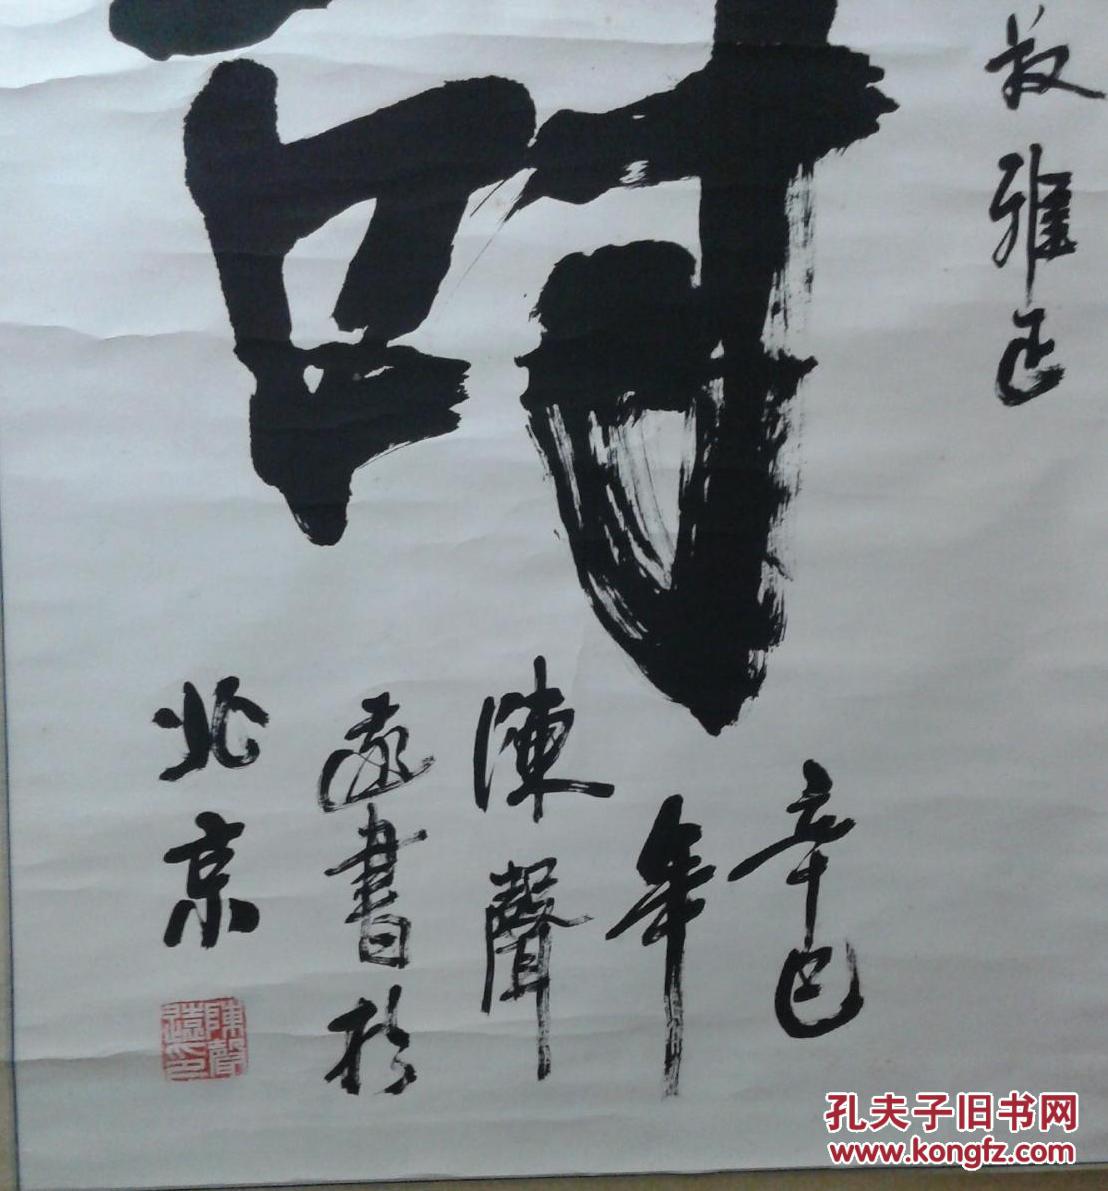 雅正
辛巳
年
陳聲
遠書於
北京
陳聲
遠印
孔夫子旧书网
www.kongfz.com